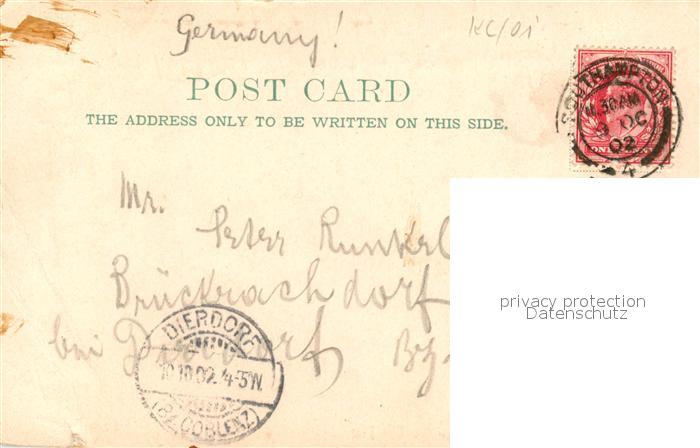 Germany!
KC/01
POST CARD
THE ADDRESS ONLY TO BE WRITTEN ON THIS SIDE.
SOUTHAMPTON
30 AM
OC
02
4
Mr.
Peter Runkel
Brückrachdorf
bei Dierdorf Bz
DIERDORF
10.10.02. 4-5N.
(BZ. COBLENZ)
privacy protection
Datenschutz